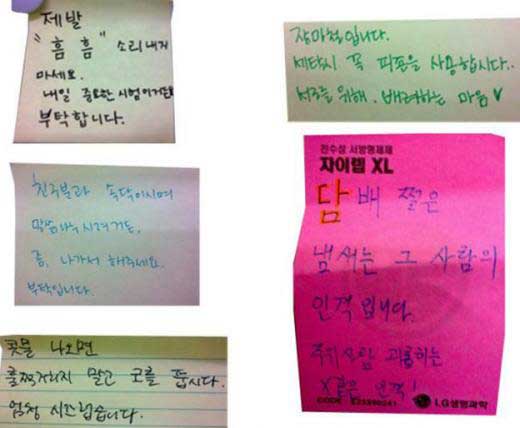 제발
"흠흠" 소리내지
마세요.
내일 중요한 시험이거든요
부탁합니다.
친구분과 속닥이시며
말씀하시려거든,
좀, 나가서 해주세요.
부탁입니다.
콧물 나오면
훌쩍거리지 말고 코를 풉시다.
엄청 시끄럽습니다.
장마철입니다.
세탁시 꼭 피죤을 사용합시다..
서로를 위해. 배려하는 마음♥
진수성 서방형제제
자이렙 XL
담배 쩔은
냄새는 그 사람의
인격입니다.
주위사람 괴롭히는
X같은 인격!
CODE :
LG생명과학